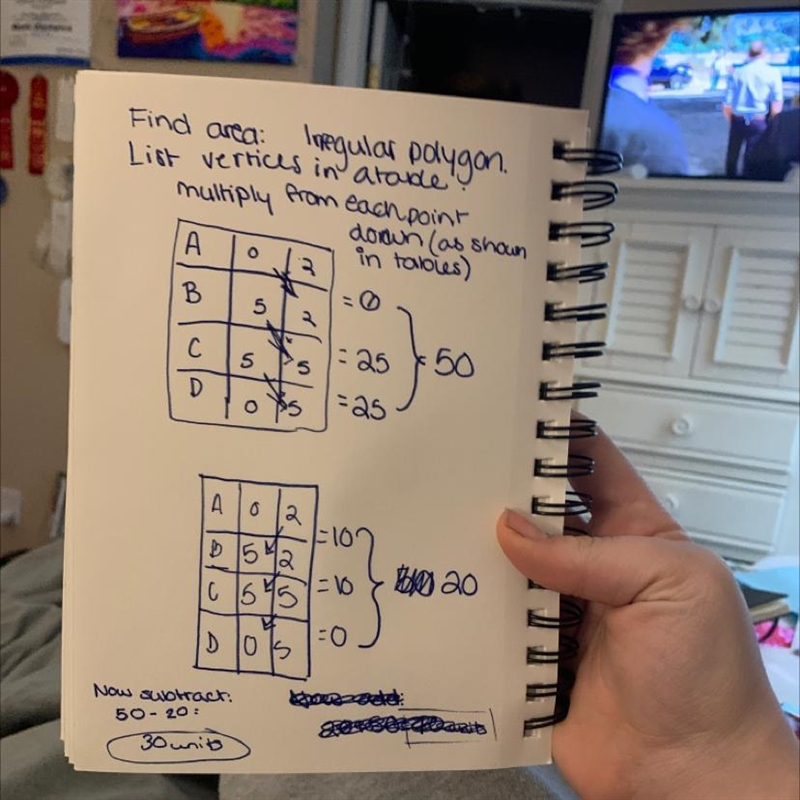 Find area: Irregular polygon.
List vertices in a table.
multiply from each point
down (as shown
in tables)
A 0 2
B 5 2 = 0
C 5 5 = 25 = 50
D 0 5 = 25
A 0 2
B 5 2 = 10
C 5 5 = 10 20
D 0 5 = 0
Now subtract:
50 - 20 =
30 units